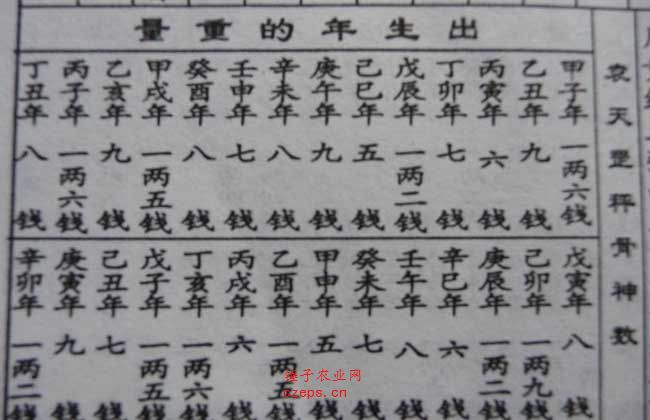 袁天罡秤骨神数
出生年的重量
甲子年 一两六钱
乙丑年 九钱
丙寅年 六钱
丁卯年 七钱
戊辰年 一两二钱
己巳年 五钱
庚午年 九钱
辛未年 八钱
壬申年 七钱
癸酉年 八钱
甲戌年 一两五钱
乙亥年 九钱
丙子年 一两六钱
丁丑年 八钱
戊寅年 八钱
己卯年 一两九钱
庚辰年 一两二钱
辛巳年 六钱
壬午年 八钱
癸未年 七钱
甲申年 五钱
乙酉年 一两五钱
丙戌年 六钱
丁亥年 一两六钱
戊子年 一两五钱
己丑年 七钱
庚寅年 九钱
辛卯年 一两二钱
锤子农业网
czeps.cn